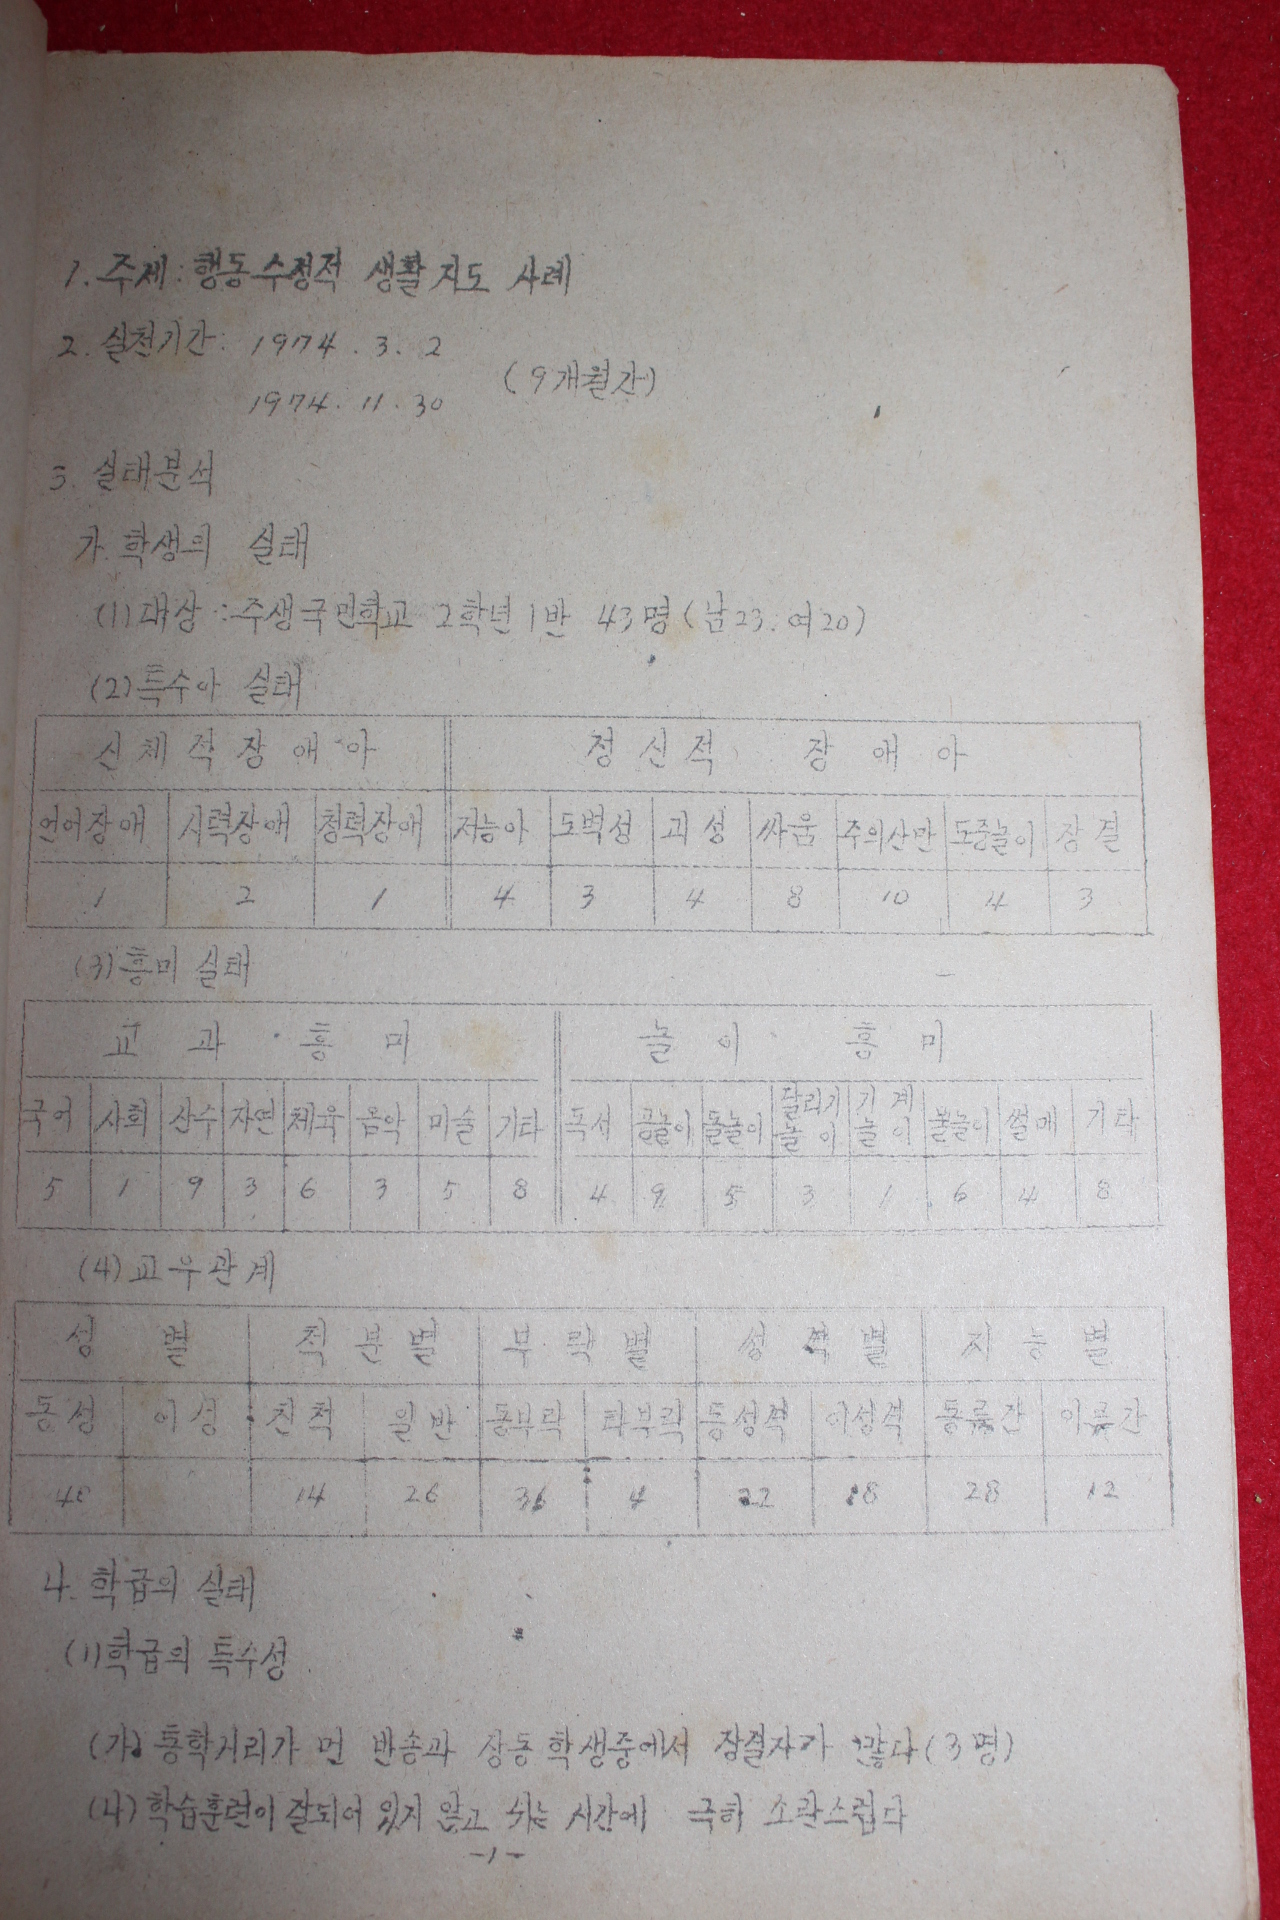 1. 주제 : 행동수정적 생활지도 사례
2. 실천기간 : 1974. 3. 2
(9개월간)
1974. 11. 30
3. 실태분석
가. 학생의 실태
(1) 대상 : 주생국민학교 2학년 1반 43명 (남23. 여20)
(2) 특수아 실태
신체적장애아 정신적 장애아
언어장애 시력장애 청력장애 저능아 도벽성 괴성 싸움 주의산만 도중놀이 장결
1 2 1 4 3 4 8 10 4 3
(3) 흥미 실태
교과흥미 놀이흥미
국어 사회 산수 자연 체육 음악 미술 기타 독서 공놀이 돌놀이 달리기놀이 기계놀이 불놀이 썰매 기타
5 1 9 3 6 3 5 8 4 9 5 3 1 6 4 8
(4) 교우관계
성별 척분별 부락별 성격별 지능별
동성 이성 친척 일반 동부락 타부락 동성격 이성격 동류간 이류간
40 14 26 36 4 22 18 28 12
나. 학급의 실태
(1) 학급의 특수성
(가) 통학거리가 먼 반송과 상동 학생중에서 장결자가 많다 (3명)
(나) 학습훈련이 잘되어 있지 않고 쉬는 시간에 극히 소란스럽다
-1-